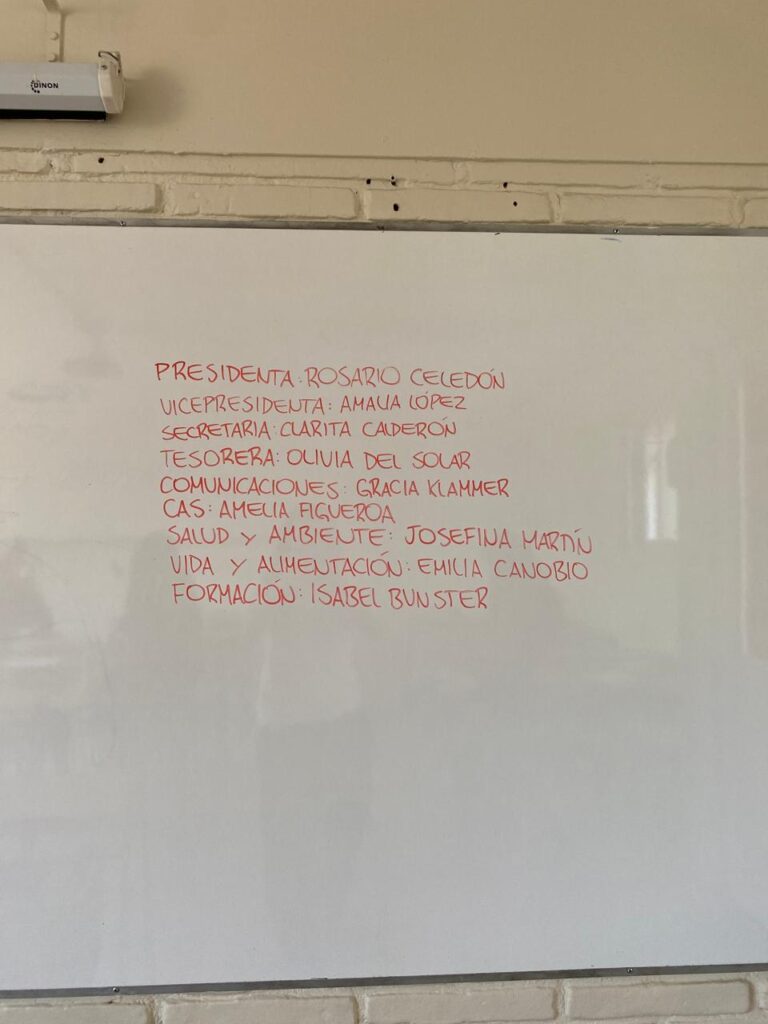 DINON
PRESIDENTA: ROSARIO CELEDÓN
VICEPRESIDENTA: AMALIA LÓPEZ
SECRETARIA: CLARITA CALDERÓN
TESORERA: OLIVIA DEL SOLAR
COMUNICACIONES: GRACIA KLAMMER
CAS: AMELIA FIGUEROA
SALUD Y AMBIENTE: JOSEFINA MARTÍN
VIDA Y ALIMENTACIÓN: EMILIA CANOBIO
FORMACIÓN: ISABEL BUNSTER